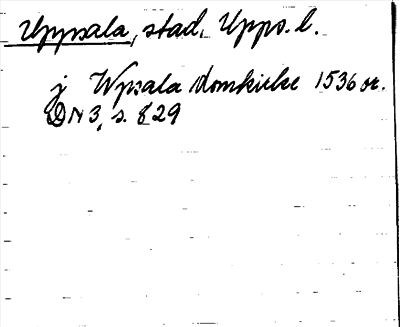 Uppsala, stad, Upps. l.
j Wpsala domkirke 1536 or.
DN 3, s. 829